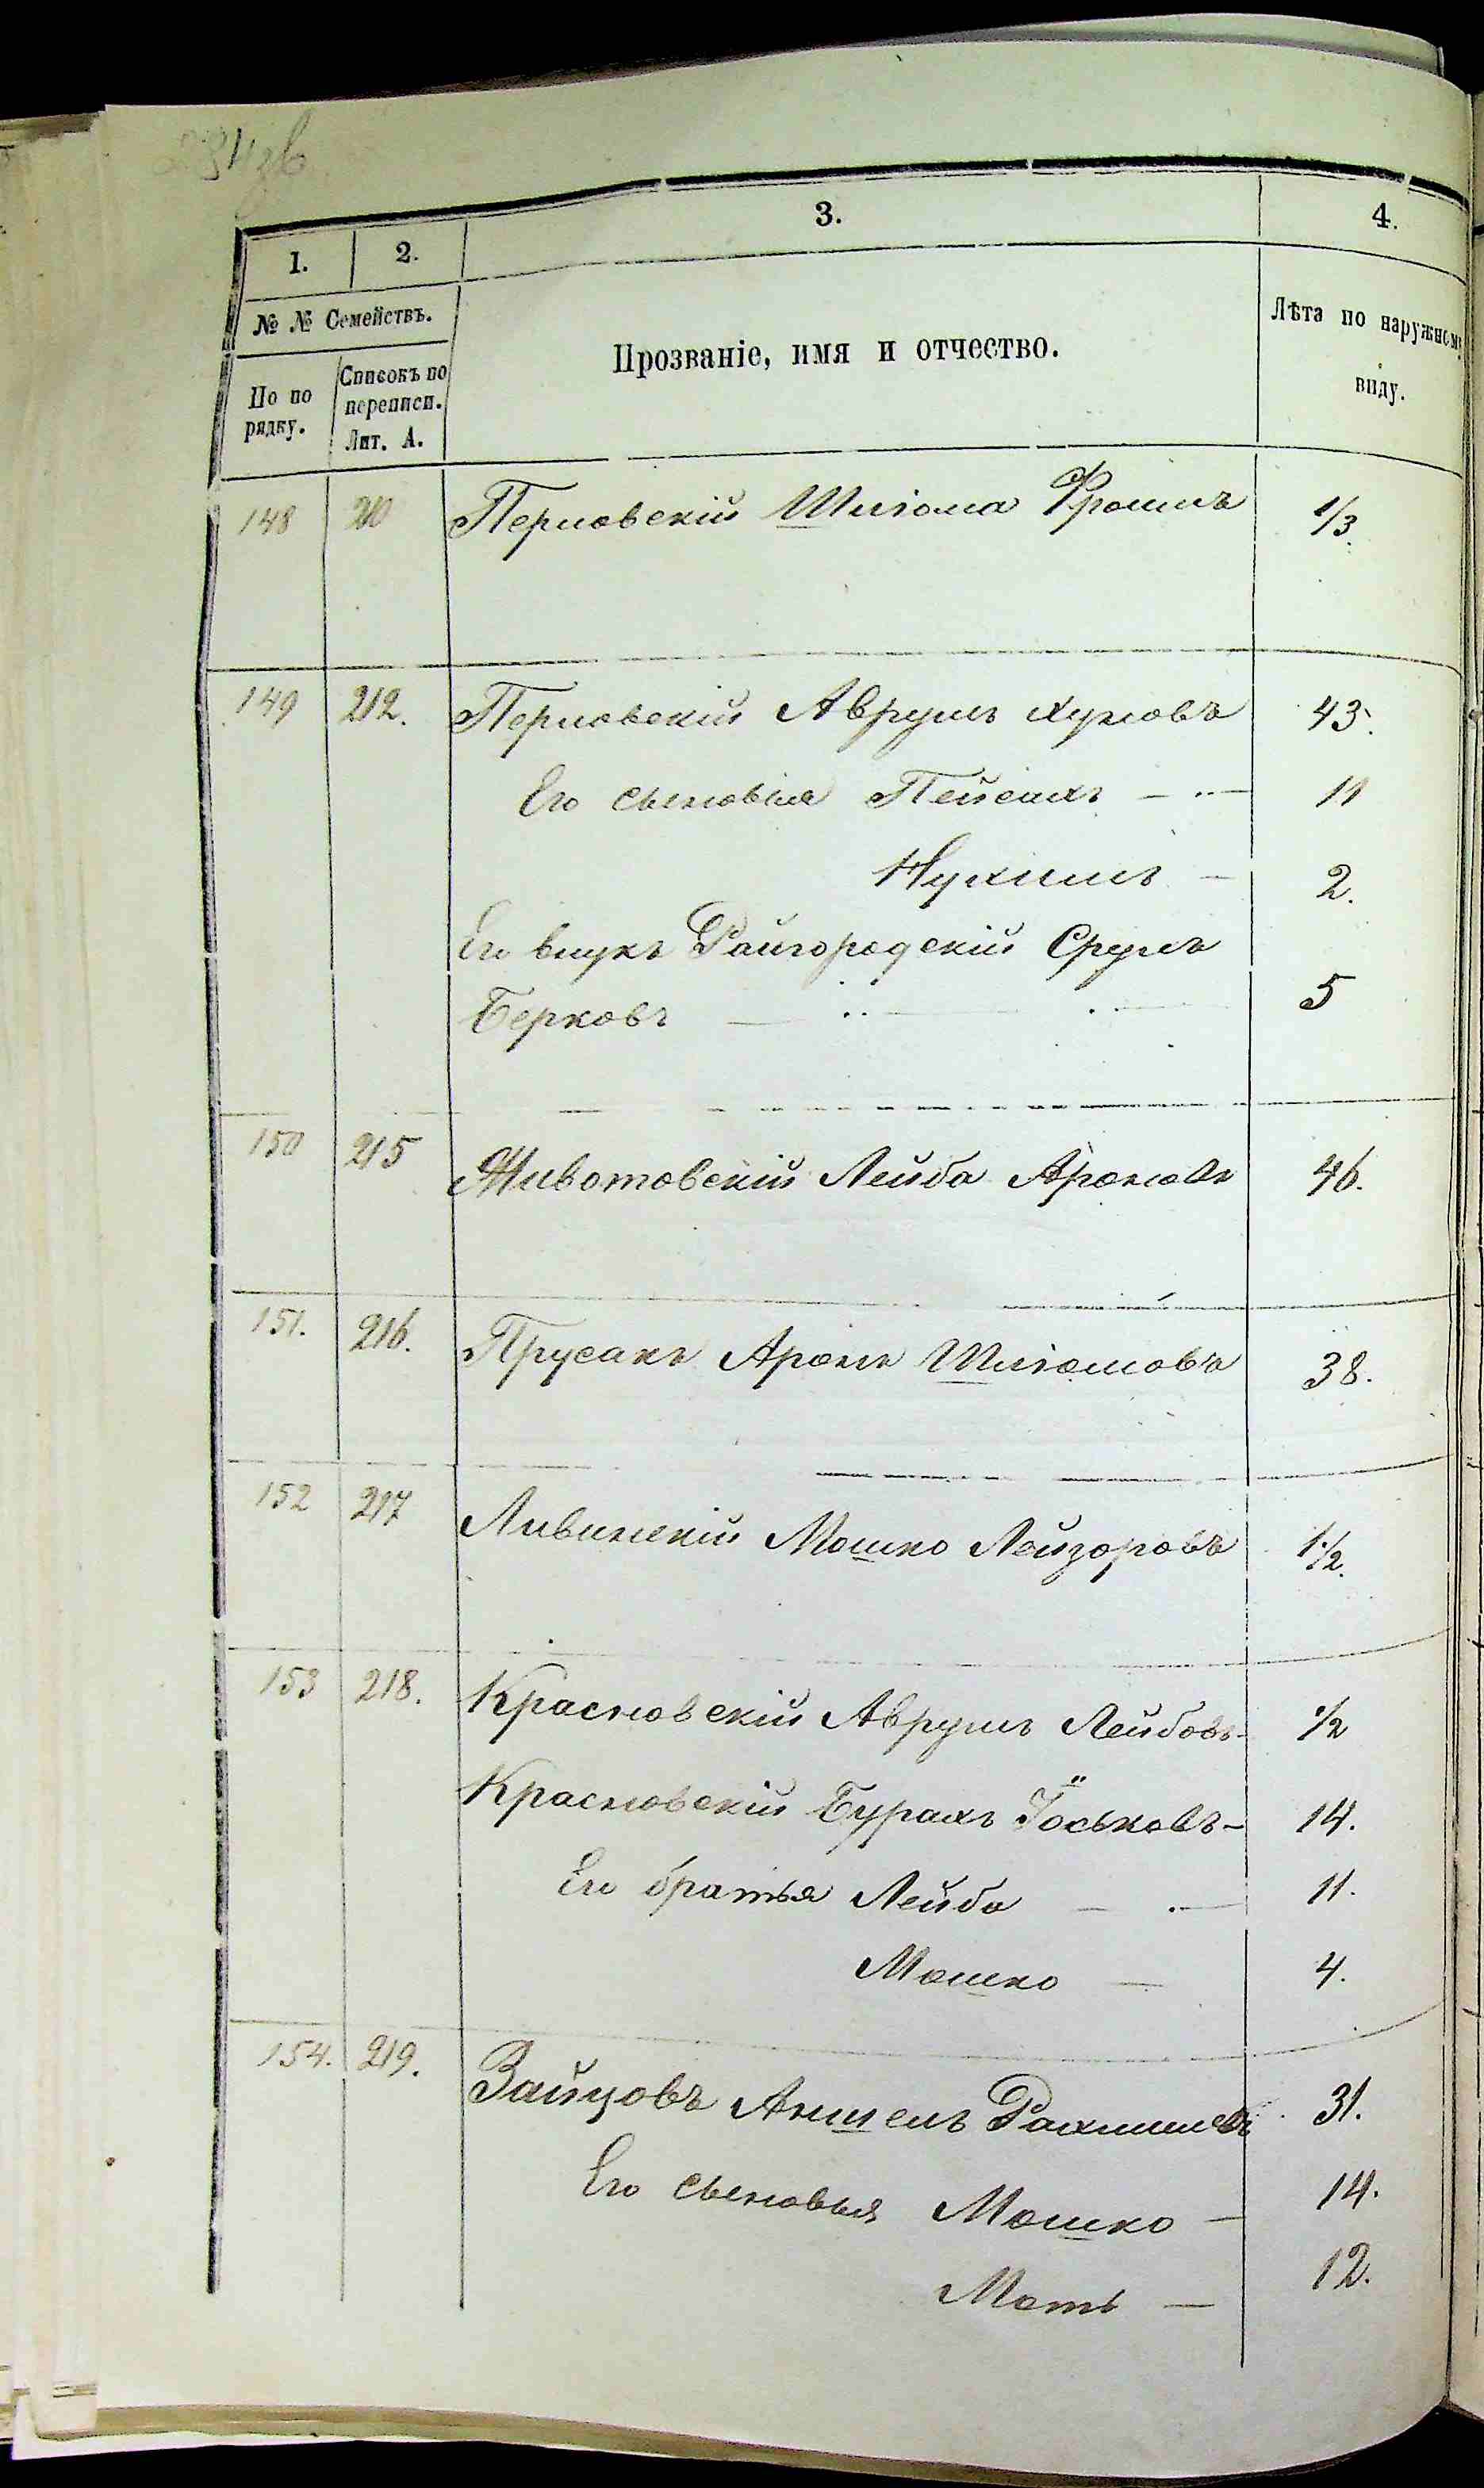 234 зв
1. 2. 3. 4.
№ № Семействъ.
По по рядку.
Списокъ по переписи. Лит. А.
Прозваніе, имя и отчество.
Лѣта по наружному виду.
148 210 Перловскій Шліома Фроимъ 1/3.
149 212. Перловскій Аврумъ Хуновъ 43.
Его сыновья Пейсахъ — 11
Нухимъ — 2.
Его внукъ Райгородскій Сруль
Берковъ — 5
150 215 Животовскій Лейба Ароновъ 46.
151. 216. Прусакъ Аронъ Шліомовъ 38.
152 217 Ливинскій Мошко Лейзоровъ 1/2.
153 218. Красновскій Аврумъ Лейбовъ - 1/2
Красновскій Бурахъ Іоськовъ - 14.
Его братья Лейба — 11.
Мошко — 4.
154. 219. Зайцовъ Аншель Рахмилевъ 31.
Его сыновья Мошко — 14.
Моть — 12.